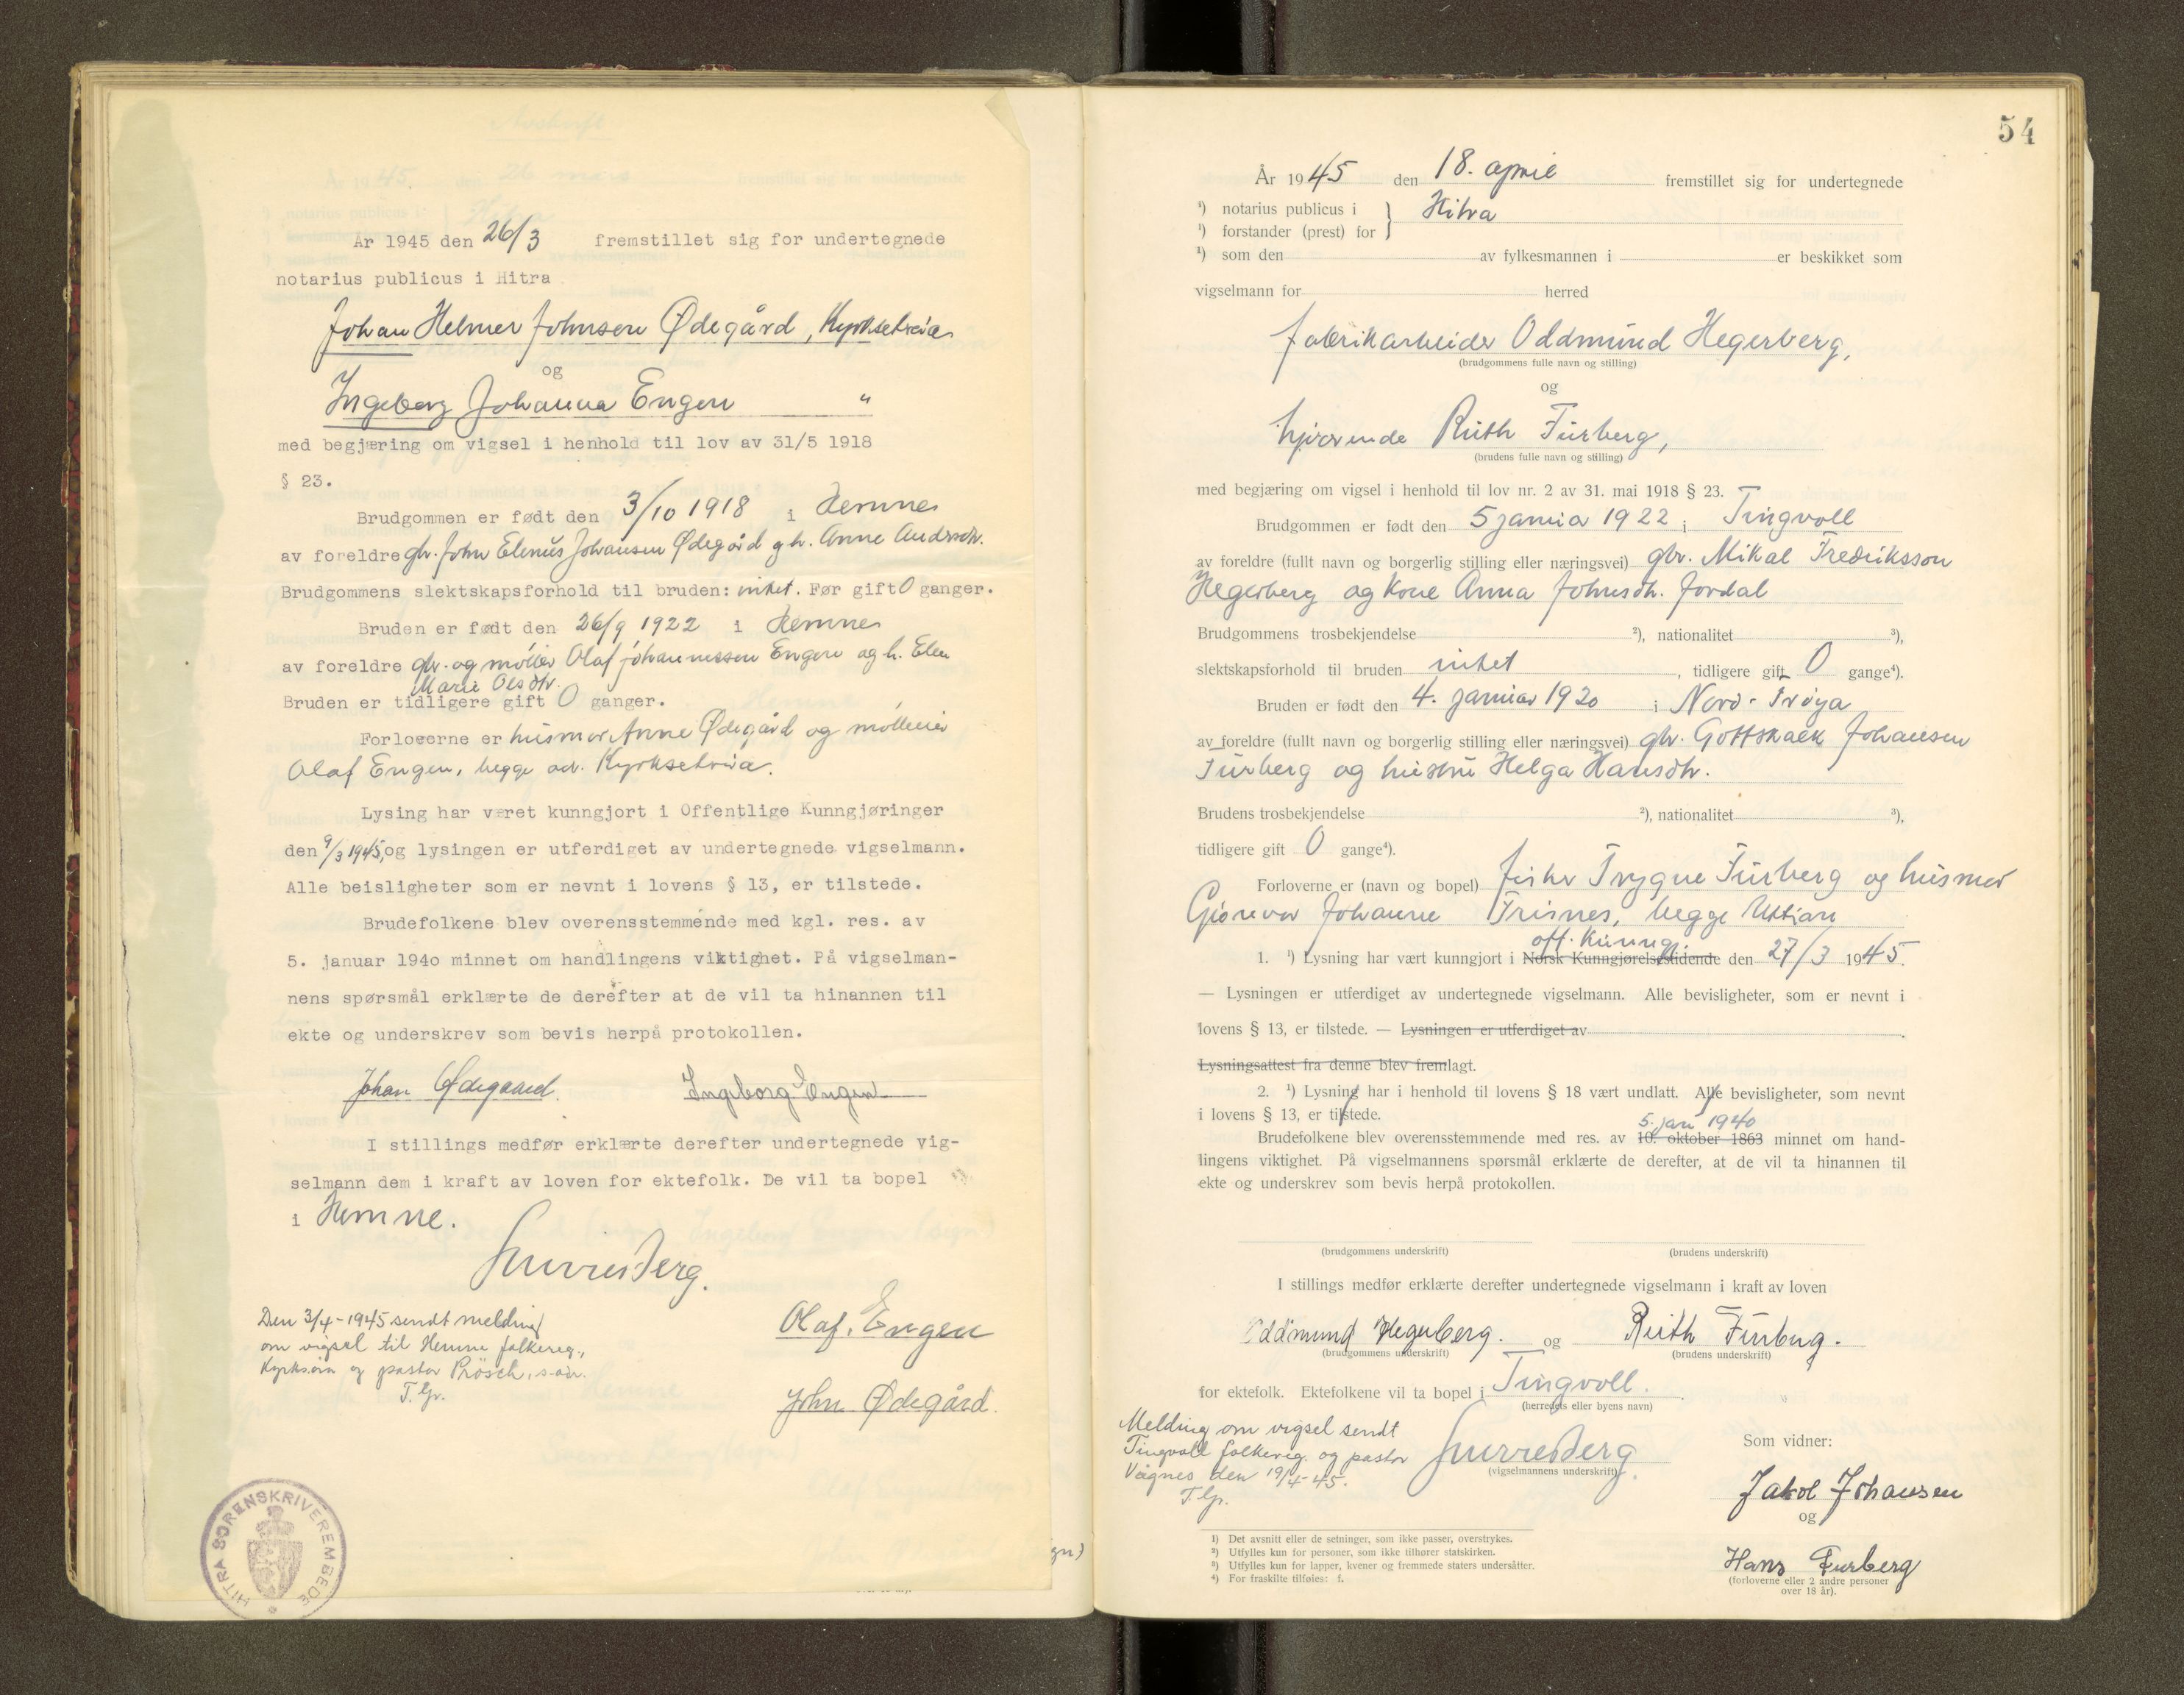 År 1945 den 26/3 fremstillet sig for undertegnede
notarius publicus i Hitra
Johan Helmer Johnsen Ødegård, Kyrksetøra
og
Ingeborg Johanna Engen "
med begjæring om vigsel i henhold til lov av 31/5 1918
§ 23.
Brudgommen er født den 3/10 1918 i Hemne
av foreldre gbr. John Elenus Johansen Ødegård g h. Anne Andersdtr.
Brudgommens slektskapsforhold til bruden: intet. Før gift 0 ganger.
Bruden er født den 26/9 1922 i Hemne
av foreldre gbr. og møller Olaf Johannessen Engen og h. Elen
Marie Olsdtr.
Bruden er tidligere gift 0 ganger.
Forloverne er husmor Anne Ødegård og mølleeier
Olaf Engen, begge adr. Kyrksetøra.
Lysing har været kunngjort i Offentlige Kunngjøringer
den 9/3 1945, og lysingen er utferdiget av undertegnede vigselmann.
Alle beisligheter som er nevnt i lovens § 13, er tilstede.
Brudefolkene blev overensstemmende med kgl. res. av
5. januar 1940 minnet om handlingens viktighet. På vigselman-
nens spørsmål erklærte de derefter at de vil ta hinannen til
ekte og underskrev som bevis herpå protokollen.
Johan Ødegaard. Ingeborg Engen
I stillings medfør erklærte derefter undertegnede vig-
selmann dem i kraft av loven for ektefolk. De vil ta bopel
i Hemne.
Den 3/4-1945 sendt melding
om vigsel til Hemne folkereg.,
Kyrks.øra og pastor Prösch, s. adr.
T. Gr.
Olaf. Engen
John Ødegård.
HITRA SORENSKRIVEREMBEDE
54
År 1945 den 18. april fremstillet sig for undertegnede
¹) notarius publicus i } Hitra
¹) forstander (prest) for
¹) som den av fylkesmannen i er beskikket som
vigselmann for herred
fabrikarbeider Oddmund Hegerberg,
(brudgommens fulle navn og stilling)
og
hjvrende Ruth Furberg,
(brudens fulle navn og stilling)
med begjæring om vigsel i henhold til lov nr. 2 av 31. mai 1918 § 23.
Brudgommen er født den 5 januar 1922 i Tingvoll
av foreldre (fullt navn og borgerlig stilling eller næringsvei) gbr. Mikal Fredriksson
Hegerberg og kone Anna Johnsdtr. Jordal
Brudgommens trosbekjendelse ²), nationalitet ³),
slektskapsforhold til bruden intet, tidligere gift 0 gange⁴).
Bruden er født den 4. januar 1920 i Nord-Frøya
av foreldre (fullt navn og borgerlig stilling eller næringsvei) gbr. Gottskalk Johansen
Furberg og hustru Helga Hansdtr.
Brudens trosbekjendelse ²), nationalitet ³),
tidligere gift 0 gange⁴).
Forloverne er (navn og bopel) fisker Trygve Furberg og husmor
Johanne begge Uttian
off. Kunngj.
1. ¹) Lysning har vært kunngjort i Norsk Kunngjørelsestidende den 27/3 1945.
— Lysningen er utferdiget av undertegnede vigselmann. Alle bevisligheter, som er nevnt i
lovens § 13, er tilstede. — Lysningen er utferdiget av
Lysningsattest fra denne blev fremlagt.
2. ¹) Lysning har i henhold til lovens § 18 vært undlatt. Alle bevisligheter, som nevnt
i lovens § 13, er tilstede.
5. jan 1940
Brudefolkene blev overensstemmende med res. av 10. oktober 1863 minnet om hand-
lingens viktighet. På vigselmannens spørsmål erklærte de derefter, at de vil ta hinannen til
ekte og underskrev som bevis herpå protokollen.
(brudgommens underskrift) (brudens underskrift)
I stillings medfør erklærte derefter undertegnede vigselmann i kraft av loven
Oddmund Hegerberg. og Ruth Furberg.
(brudgommens underskrift) (brudens underskrift)
for ektefolk. Ektefolkene vil ta bopel i Tingvoll.
(herredets eller byens navn)
Melding om vigsel sendt
Tingvoll folkereg. og pastor
Vågnes den 19/4-45.
T. Gr.
(vigselmannens underskrift)
Som vidner:
Jakob Johansen
og
Hans Furberg
(forloverne eller 2 andre personer
over 18 år).
¹) Det avsnitt eller de setninger, som ikke passer, overstrykes.
²) Utfylles kun for personer, som ikke tilhører statskirken.
³) Utfylles kun for lapper, kvener og fremmede staters undersåtter.
⁴) For fraskilte tilføies: f.